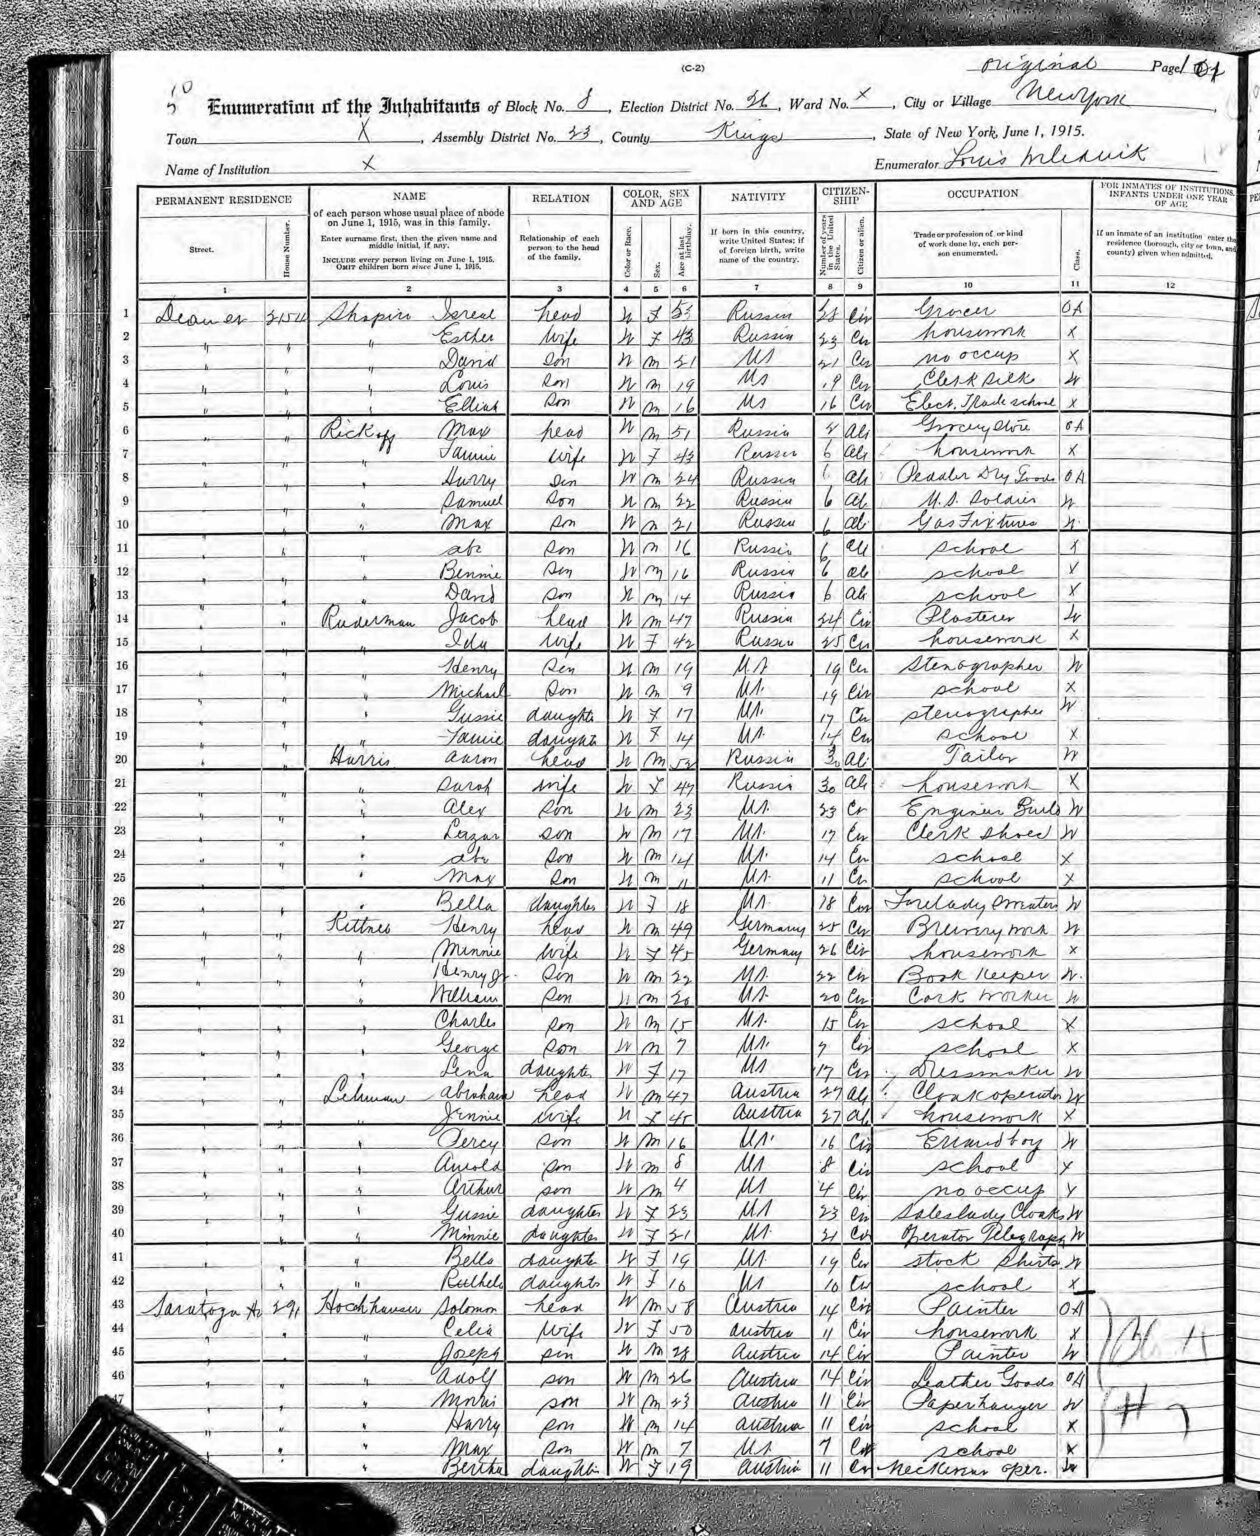 (C-2)
original Page
Enumeration of the Inhabitants of Block No. 8, Election District No. 26, Ward No. X, City or Village New York,
Town X, Assembly District No. 23, County Kings, State of New York, June 1, 1915.
Name of Institution X Enumerator Louis
PERMANENT RESIDENCE NAME RELATION COLOR, SEX AND AGE NATIVITY CITIZEN-SHIP OCCUPATION FOR INMATES OF INSTITUTIONS, INFANTS UNDER ONE YEAR OF AGE
Street. House Number. of each person whose usual place of abode on June 1, 1915, was in this family. Enter surname first, then the given name and middle initial, if any. INCLUDE every person living on June 1, 1915. OMIT children born since June 1, 1915. Relationship of each person to the head of the family. Color or Race. Sex. Age at last birthday. If born in this country, write United States; if of foreign birth, write name of the country. Number of years in the United States. Citizen or alien. Trade or profession of, or kind of work done by, each person enumerated. Class. If an inmate of an institution enter the residence (borough, city or town, and county) given when admitted.
1 2 3 4 5 6 7 8 9 10 11 12
1 Dean st 2154 Shapiro Isreal head W F 53 Russia 28 Cin Grocer OA
2 " " " Esther wife W F 43 Russia 23 Cin housework X
3 " " " David son W M 21 US 21 Cin no occup X
4 " " " Louis son W M 19 US 19 Cin Clerk Silk W
5 " " " son W M 16 US 16 Cin Elect. Trade school X
6 " " Rickoff Max head W M 51 Russia Ali Grocery store OA
7 " " " wife W F 43 Russia 6 Ali housework X
8 " " " Harry son W M 24 Russia 6 Ali Peddler Dry Goods OA
9 " " " Samuel son W M 22 Russia 6 Al U.S. Soldier W
10 " " " Max son W M 21 Russia 6 Al Gas Fixtures W
11 " " " abe son W M 16 Russia 6 Ali school X
12 " " " Bennie son W M 16 Russia 6 Al school X
13 " " " David son W M 14 Russia 6 Ali school X
14 " " Ruderman Jacob head W M 47 Russia 24 Cin Plasterer W
15 " " " Ida wife W F 42 Russia 25 Cin housework X
16 " " " Henry son W M 19 US 19 Cin Stenographer W
17 " " " Michael son W M 9 US 19 Cin school X
18 " " " Gussie daughter W F 17 US 17 Cin stenographer W
19 " " " daughter W F 14 US 14 Cin school X
20 " " Harris aaron head W M 52 Russia 30 Ali Tailor W
21 " " " Sarah wife W F 47 Russia 30 Ali housework X
22 " " " Alex son W M 23 US 23 Cin Engineer W
23 " " " Lazar son W M 17 US 17 Cin Clerk Shoes W
24 " " " abe son W M 14 US 14 Cin school X
25 " " " Max son W M 11 US 11 Cin school X
26 " " " Bella daughter W F 18 US 18 Cin Forelady W
27 " " Henry head W M 49 Germany 25 Cin Brewery work W
28 " " " Minnie wife W F 45 Germany 26 Cin housework X
29 " " " Henry Jr. son W M 22 US 22 Cin Book Keeper W
30 " " " William son W M 20 US 20 Cin Cork Worker W
31 " " " Charles son W M 15 US 15 Cin school X
32 " " " George son W M 7 US 7 Cin school X
33 " " " Lena daughter W F 17 US 17 Cin Dressmaker W
34 " " Lehman abraham head W M 47 Austria 27 Ali Cloak operator W
35 " " " Jennie wife W F 45 Austria 27 Al housework X
36 " " " Percy son W M 16 US 16 Cin Errand boy W
37 " " " Arnold son W M 8 US 8 Cin school X
38 " " " Arthur son W M 4 US 4 Cin no occup X
39 " " " Gussie daughter W F 23 US 23 Cin Saleslady Cloaks W
40 " " " Minnie daughter W F 21 US 21 Cin operator Telegraph W
41 " " " Bella daughter W F 19 US 19 Cin stock Shirts W
42 " " " daughter W F 16 US 16 Cin school X
43 Saratoga Av 291 Hochhauser Solomon head W M 58 Austria 14 Cin Painter OA
44 " " " Celia wife W F 50 austria 11 Cin housework X
45 " " " Joseph son W M 28 Austria 14 Cin Painter W
46 " " " Adolf son W M 26 Austria 14 Cin Leather Goods OA
47 " " " Morris son W M 23 Austria 11 Cin Paperhanger W
" " " Harry son W M 14 Austria 11 Cin school X
" " " Max son W M 7 US 7 Cin school X
" " " Bertha daughter W F 19 Austria 11 Cin Neckwear oper. W